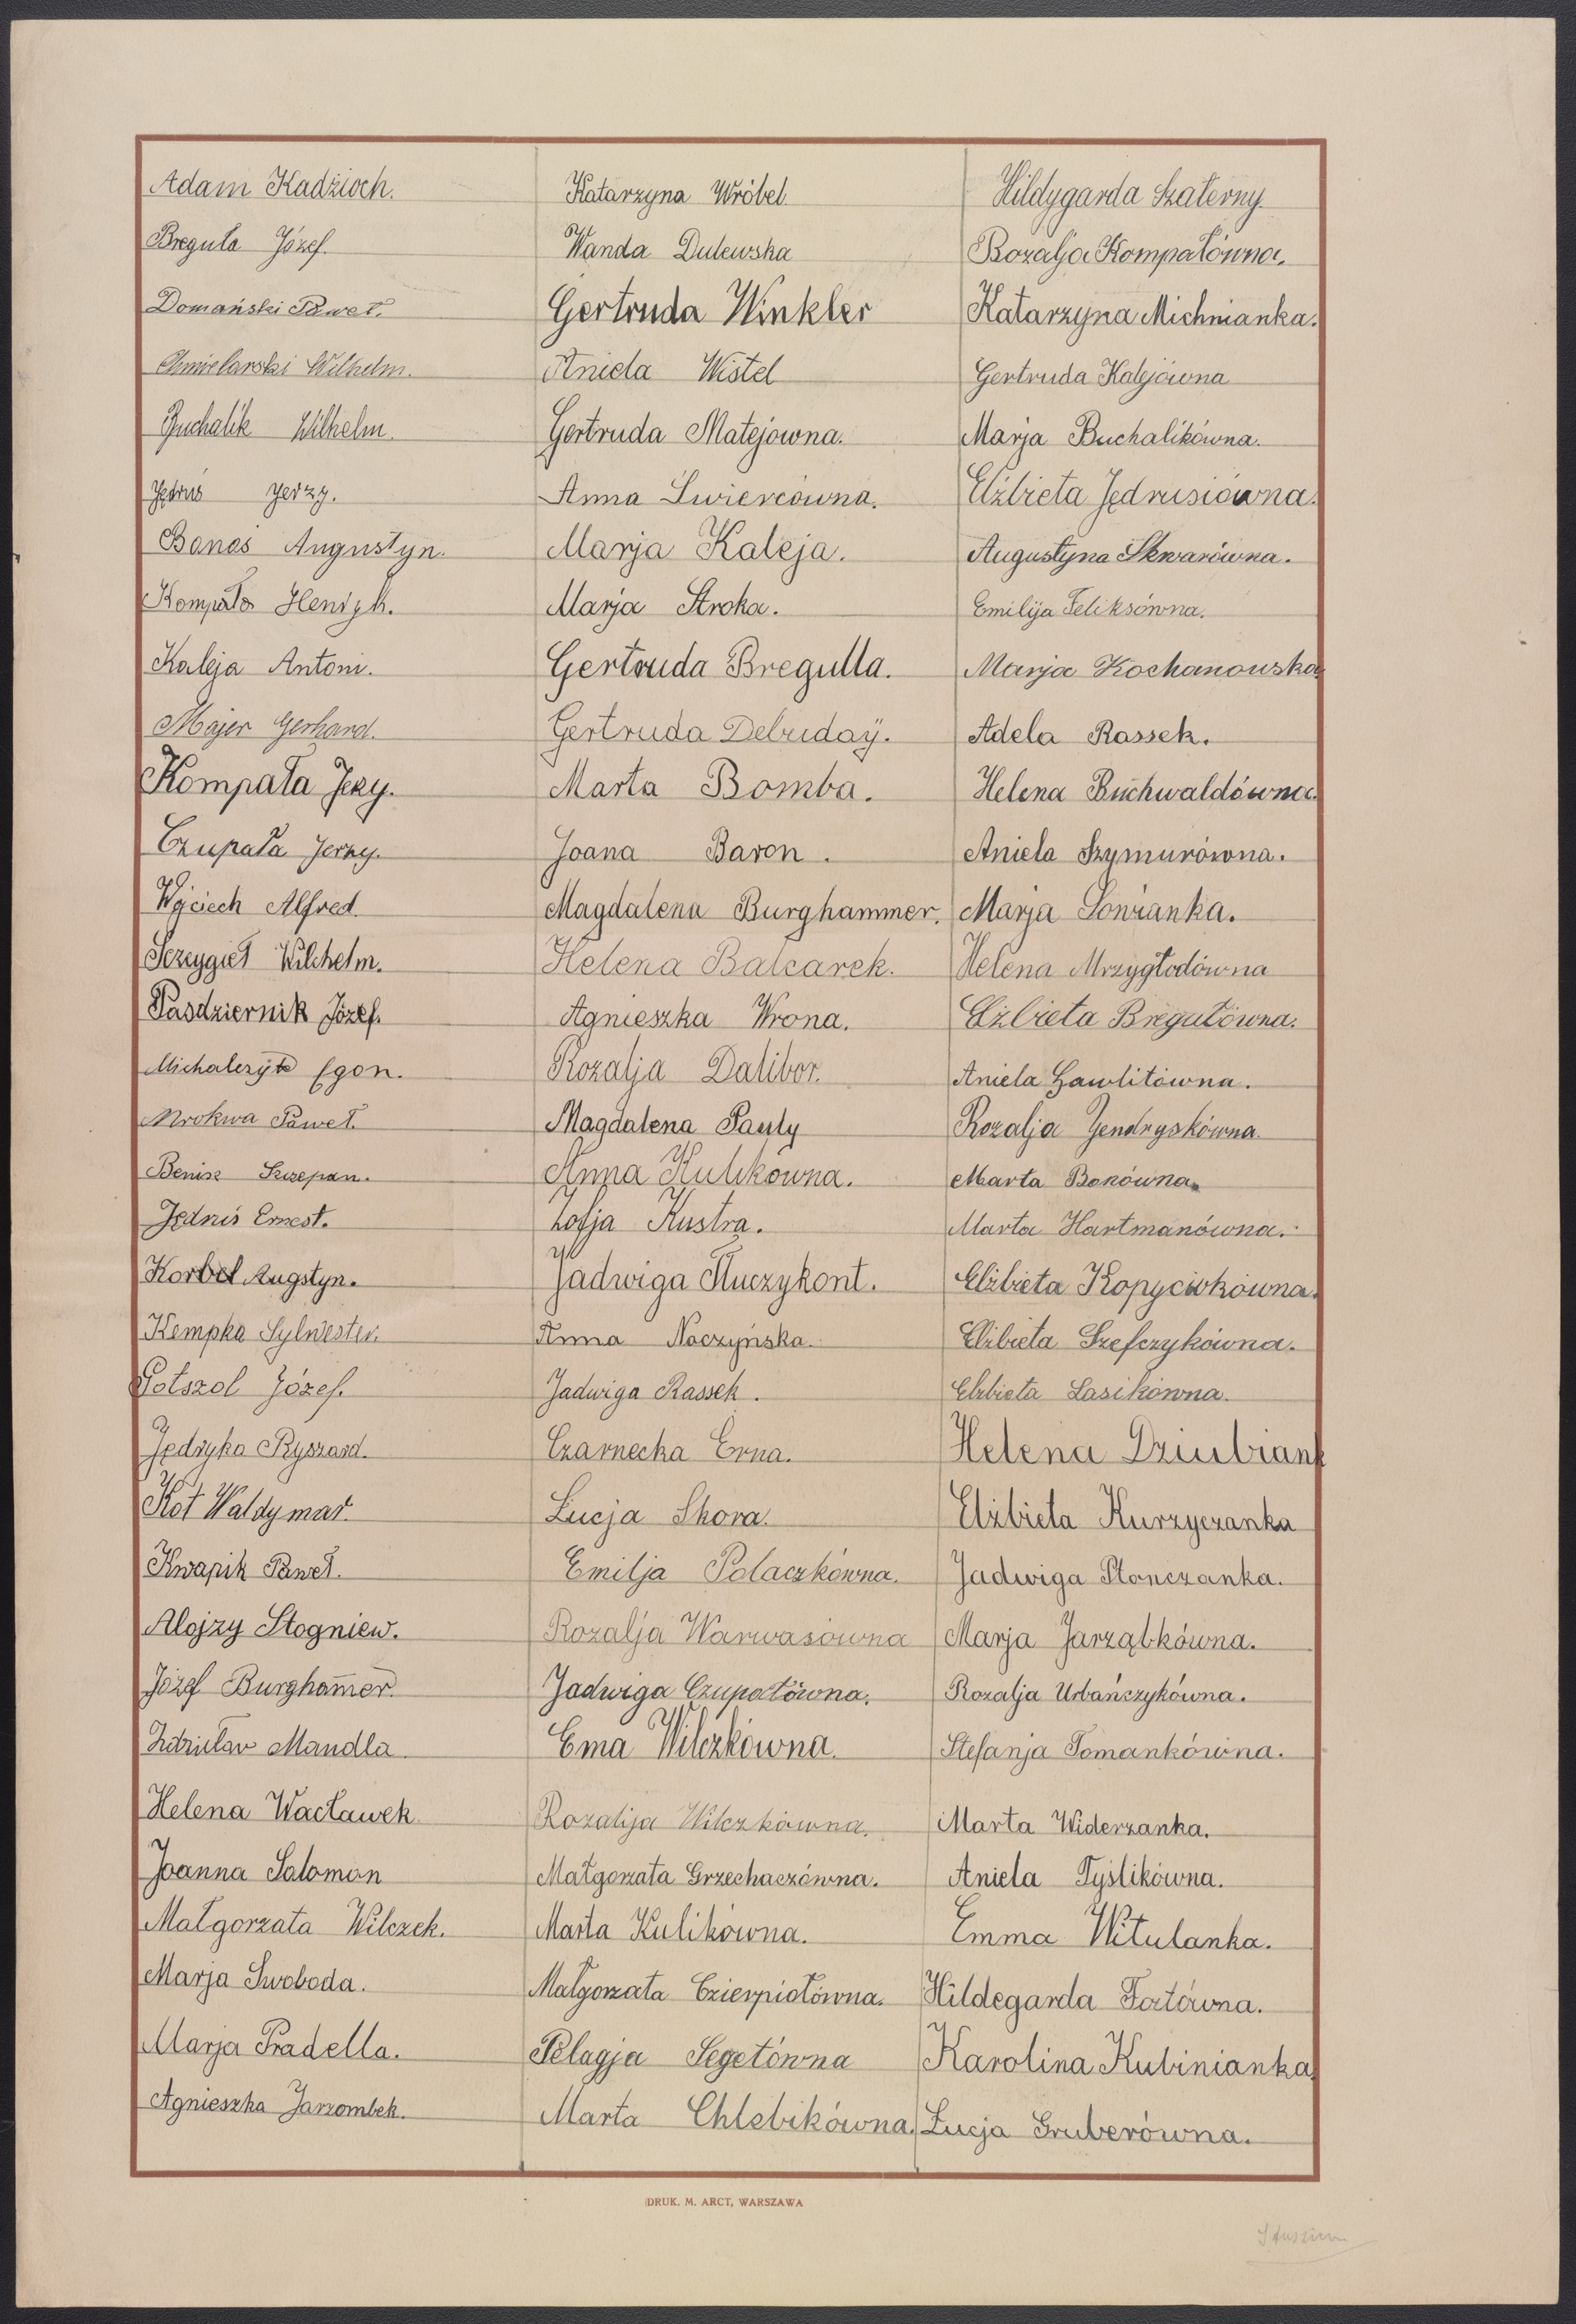 Adam Kadzioch.
Breguła Józef.
Domański Paweł.
Chmielarski Wilhelm.
Buchalik Wilhelm.
Jędruś Jerzy.
Banaś Augustyn.
Kompała Henryk.
Kaleja Antoni.
Majer Gerhard.
Kompała Jerzy.
Czupała Jerzy.
Wojciech Alfred.
Sczygieł Wilchelm.
Pasdziernik Józef.
Michalczyk Egon.
Mrokwa Paweł.
Benisz Szczepan.
Jędruś Ernest.
Korbel Augstyn.
Kempka Sylwester.
Potszol Józef.
Jędryka Ryszard.
Kot Waldymar.
Kwapik Paweł.
Alojzy Stogniew.
Józef Burghamer.
Mandla
Helena Wacławek
Joanna Salomon
Małgorzata Wilczek.
Marja Swoboda.
Marja Pradella.
Agnieszka Jarzombek.
Katarzyna Wróbel.
Wanda Dulewska
Gertruda Winkler
Aniela Wistel
Gertruda Matejówna.
Anna Świercówna.
Marja Kaleja.
Marja Stroka.
Gertruda Bregulla.
Gertruda Debudaÿ.
Marta Bomba.
Joana Baron.
Magdalena Burghammer.
Helena Balcarek.
Agnieszka Wrona.
Rozalja Dalibor.
Magdalena Pauly
Anna Kulikówna.
Zofja Kustra.
Jadwiga Tłuczykont.
Anna Naczyńska.
Jadwiga Rassek.
Czarnecka Erna.
Łucja Skora.
Emilja Polaczkówna.
Rozalja Warwasówna
Jadwiga Czupałówna.
Ema Wilczkówna.
Rozalija Wilczkówna.
Małgorzata Grzechaczówna.
Marta Kulikówna.
Małgorzata Czierpiołówna.
Pelagja Segetówna
Marta Chlebikówna.
Hildygarda Szaterny.
Rozalja Kompałówna.
Katarzyna Michnianka.
Gertruda Kalejówna
Marja Buchalikówna.
Elżbieta Jędrusiówna.
Augustyna Skwarówna.
Emilija Feliksówna.
Marja Kochanowska
Adela Rassek.
Helena Buchwaldówna.
Aniela Szymurówna.
Marja Sonzanka.
Helena Mrzygłodówna
Elżbieta Bregułówna.
Aniela Gawlitówna.
Rozalja Jendryskówna.
Marta Bonówna.
Marta Hartmanówna.
Elżbieta Kopyciokówna.
Elżbieta Szefczykówna.
Elżbieta Lasikówna.
Helena Dziubiank
Elżbieta Kurzyczanka
Jadwiga Płonczanka.
Marja Jarząbkówna.
Rozalja Urbańczykówna.
Stefanja Tomankówna.
Marta Widerzanka.
Aniela Tyślikówna.
Emma Witulanka.
Hildegarda Fortówna.
Karolina Kubinianka
Łucja Gruberówna.
DRUK. M. ARCT, WARSZAWA